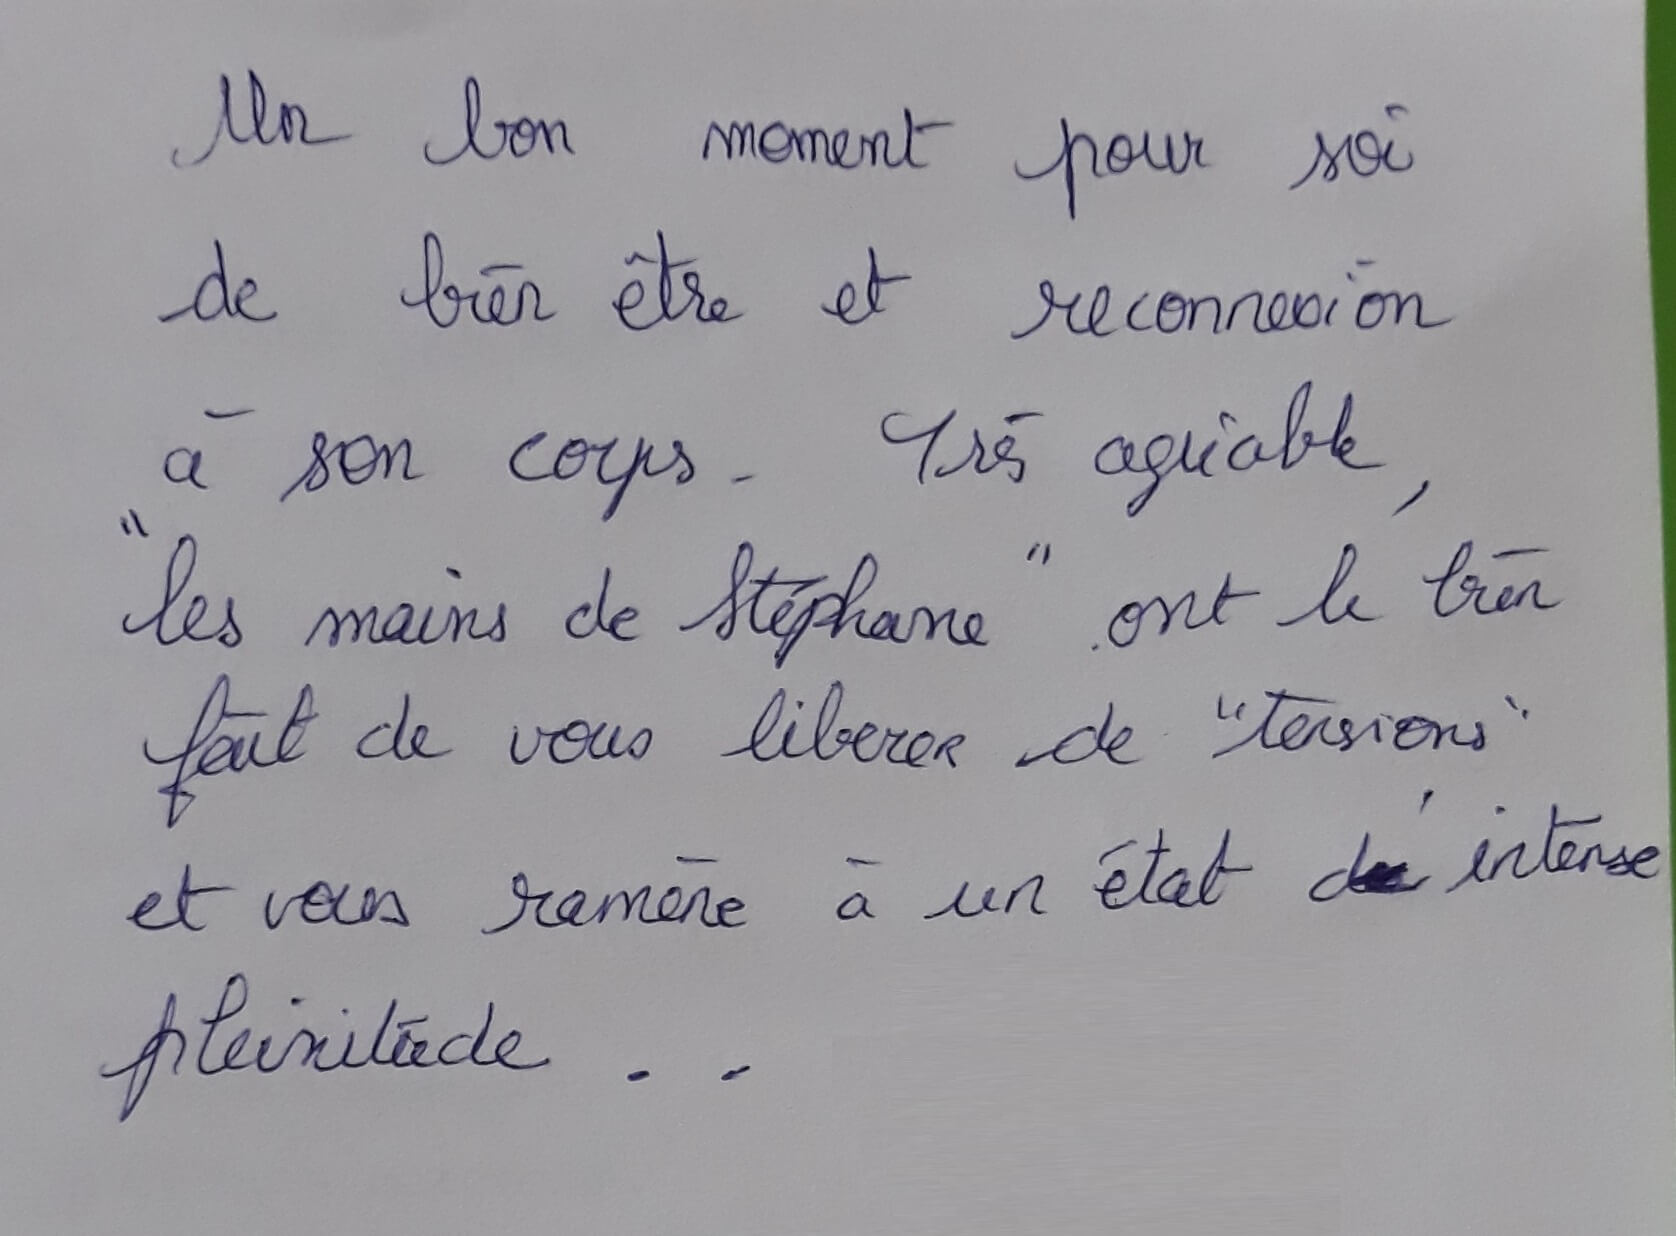 Un bon moment pour soi
de bien être et reconnexion
à son corps. Très agréable,
"les mains de Stéphane" ont le bien
fait de vous liberer de "tensions"
et vous ramène à un état d'intense
pleinitude . .